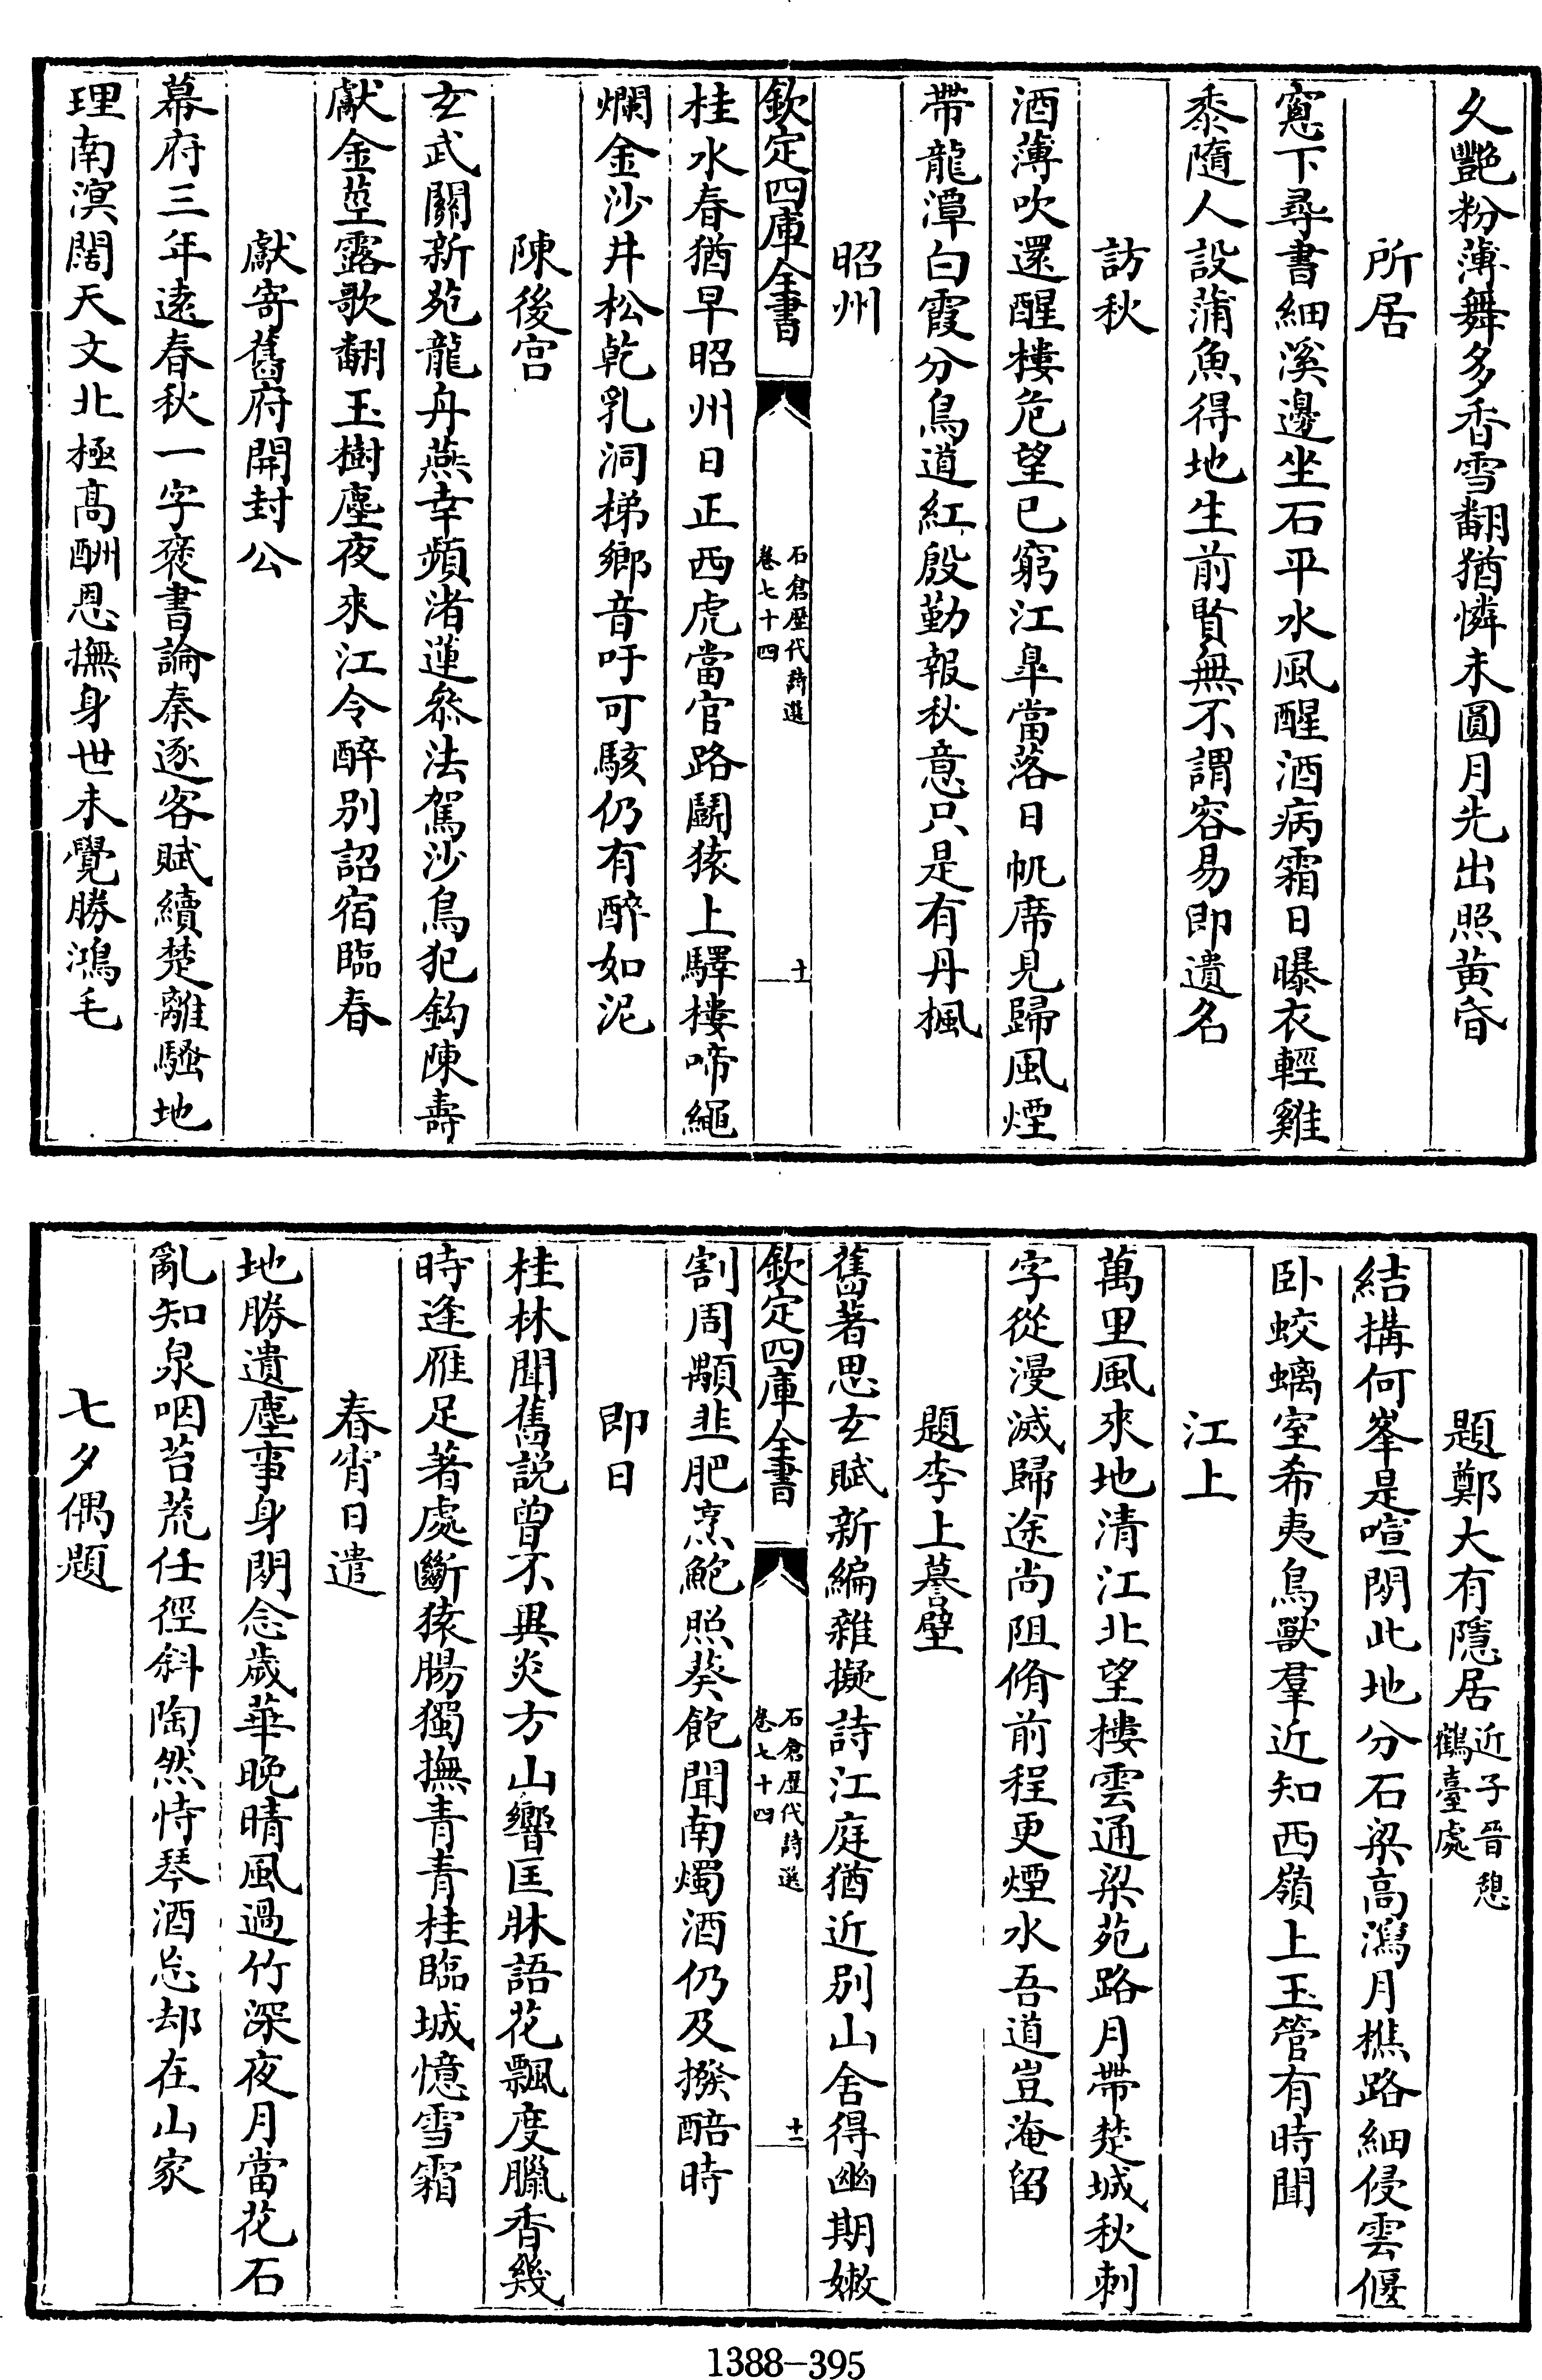 久艷粉薄舞多香雪翻猶憐未圓月先出照黃昏
所居
窻下尋書細溪邊坐石平水風醒酒病霜日曝衣輕雞
黍隨人設蒲魚得地生前賢無不謂容易即遺名
訪秋
酒薄吹還醒樓危望已窮江臯當落日帆席見歸風煙
帶龍潭白霞分鳥道紅殷勤報秋意只是有丹楓
昭州
欽定四庫全書
石倉歷代詩選
卷七十四
十一
桂水春猶早昭州日正西虎當官路鬬猿上驛樓啼繩
爛金沙井松乾乳洞梯鄉音吁可駭仍有醉如泥
陳後宫
玄武關新苑龍舟燕幸頻渚蓮叅法駕沙鳥犯鈎陳壽
獻金莖露歌翻玉樹塵夜來江令醉别詔宿臨春
獻寄舊府開封公
幕府三年遠春秋一字褒書論秦逐客賦續楚離騷地
理南溟闊天文北極高酬恩撫身世未覺勝鴻毛
題鄭大有隱居近子晉憩鶴臺處
結搆何峯是喧閑此地分石梁高瀉月樵路細侵雲偃
卧蛟螭室希夷鳥獸羣近知西嶺上玉管有時聞
江上
萬里風來地清江北望樓雲通梁苑路月帶楚城秋刺
字從漫滅歸途尚阻脩前程更煙水吾道豈淹留
題李上謩壁
舊著思玄賦新編雜擬詩江庭猶近别山舍得幽期嫩
欽定四庫全書
石倉歷代詩選
卷七十四
十二
割周顒韭肥烹鮑照葵飽聞南燭酒仍及撥醅時
即日
桂林聞舊説曾不異炎方山響匡牀語花飄度臘香幾
時逢雁足著處斷猿腸獨撫青青桂臨城憶雪霜
春宵日遣
地勝遺塵事身閑念歲華晚晴風過竹深夜月當花石
亂知泉咽苔荒任徑斜陶然恃琴酒忘却在山家
七夕偶題
1388-395